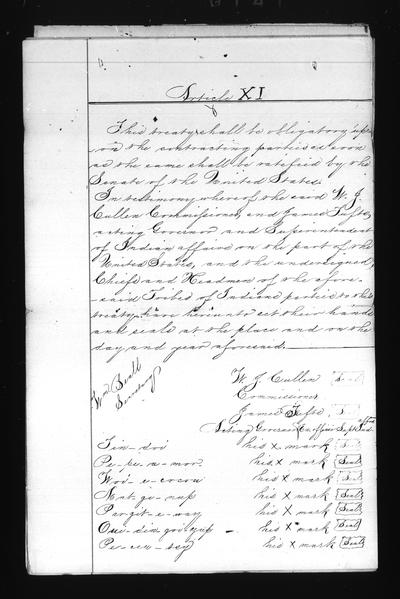 Article XI
This treaty shall be obligatory upon
the contracting parties as soon
as the same shall be ratified by the
Senate of the United States.
In testimony whereof the said W. J.
Cullen Commissioner, and James Tufts,
acting Governor and Superintendent
of Indian affairs on the part of the
United States, and the undersigned
Chiefs and Headmen of the afore-
-said Tribes of Indians parties to this
treaty have hereunto set their hands
and seals at the place and on the
day and year aforesaid.
Wm Beall
Secretary
W. J. Cullen Seal
Commissioner
James Tufts
Acting Governor
Tin-doi his x mark
Pe-pe-a-mor his x mark Seal
his x mark Seal
his x mark Seal
Pargit-e-way his x mark Seal
his x mark Seal
his x mark Seal